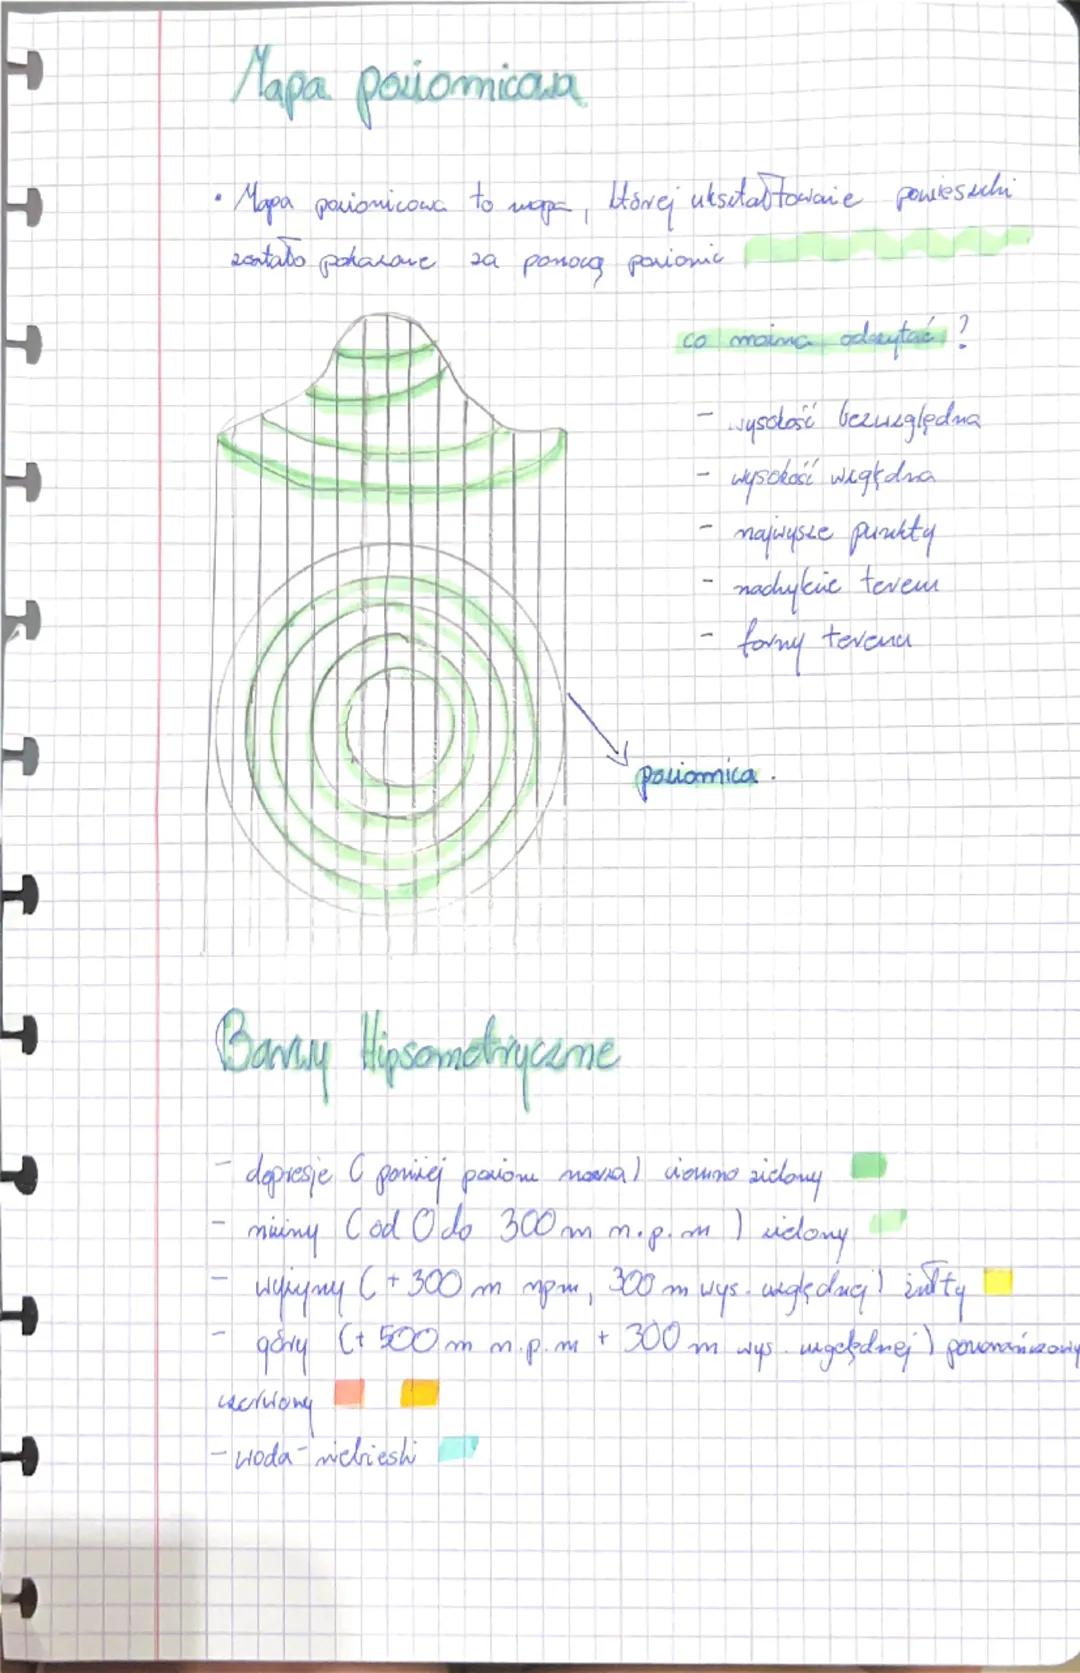 Mapa poziomicowa
• Mapa poziomicowa to mapa, której ukształtowanie powierzchni
zostało pokazane za pomocą poziomic
co można odczytać?
- wysokość bezwzględna
- wysokość względna
- najwyższe punkty
- nachylenie terenu
- formy terenu
poziomica.
Barwy Hipsometryczne
- depresje (poniżej poziomu morza) ciemno zielony
- niziny (od 0 do 300 m n.p.m) zielony
- wyżyny (+300 m npm, 300 m wys. względnej) żółty
- góry (+ 500 m n.p.m + 300 m wys. względnej) pomarańczowy
czerwony
- woda - niebieski